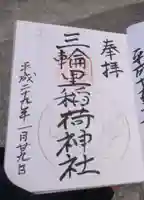 奉拝
三輪里稲荷神社
平成二十九年一月廿九日